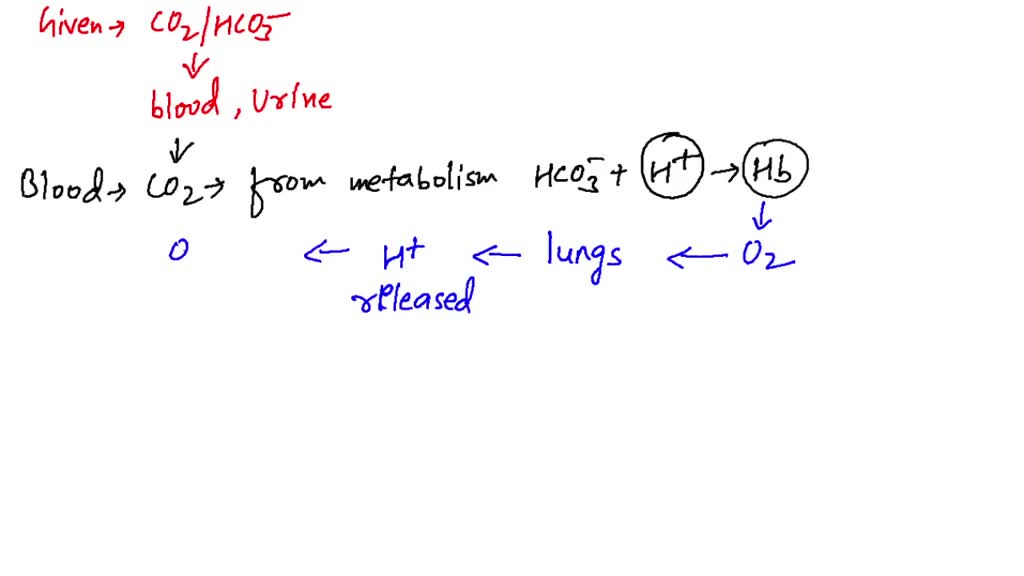 Given → CO2/HCO3⁻
↓
blood, Urine
↓
Blood → CO2 → from metabolism HCO3⁻ + H⁺ → Hb
↓
O ← H⁺ ← lungs ← O2
released